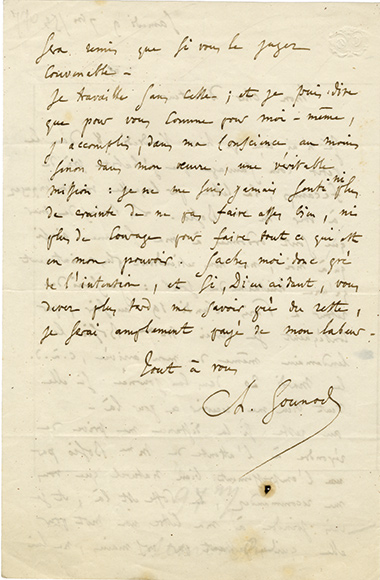 sera remis que si vous le jugez
convenable -
Je travaille sans cesse ; et je puis dire
que pour vous comme pour moi-même,
j'accomplis, dans ma conscience au moins
sinon dans mon œuvre, une véritable
mission : je ne me suis jamais senti ni plus
de crainte de ne pas faire assez bien, ni
plus de courage pour faire tout ce qui est
en mon pouvoir. Sachez moi donc gré
de l'intention, et si, Dieu aidant, vous
devez plus tard me savoir gré du reste,
je serai amplement payé de mon labeur -
Tout à vous
Ch. Gounod